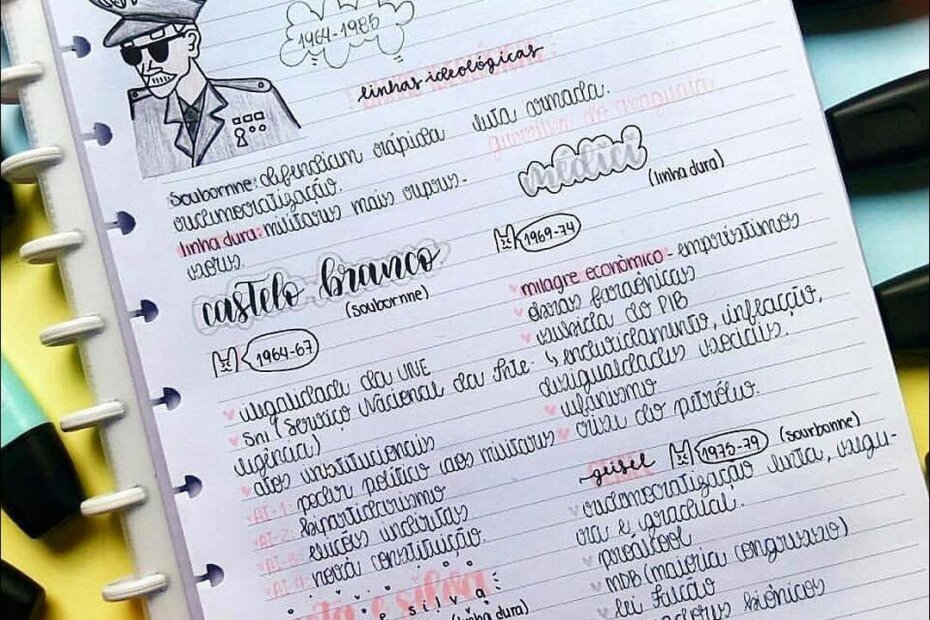 1964-1985
linhas ideológicas
Soubornne: defendiam rápida
redemocratização.
linha dura: militares mais repres-
sores
castelo branco
(soubornne)
1964-67
ilegalidade da UNE
SNI (Serviço Nacional da Inte-
ligência)
atos institucionais
AI-1: poder político aos militares
AI-2: bipartidarismo
AI-3: eleições indiretas
AI-4: nova constituição
e silva
(linha dura)
luta armada.
guerrilha do araguaia
médici
(linha dura)
1969-74
milagre econômico - empréstimos
obras faraônicas
subida do PIB
↳ endividamento, inflação,
desigualdades sociais.
ufanismo
crise do petróleo.
geisel
1975-79
(sourbonne)
redemocratização lenta, segu-
ra e gradual.
proálcool
MDB (maioria congresso)
lei falcão
biônicos